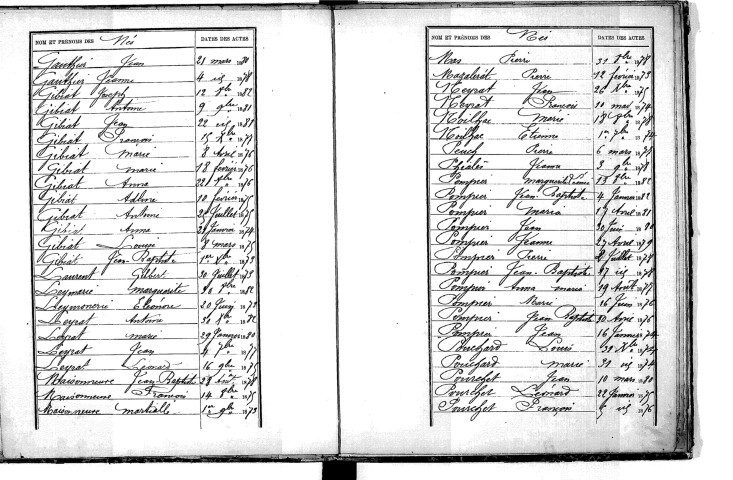 NOM ET PRÉNOMS DES Nés DATES DES ACTES
Gauthier Jean 21 mars 1880
Gauthier Jeanne 4 id 1878
Gibiat Joseph 12 8bre 1882
Gibiat Antoine 9 9bre 1881
Gibiat Jean 22 id 1881
Gibiat François 15 Xbre 1877
Gibiat Marie 8 Avril 1876
Gibiat Marie 18 février 1876
Gibiat Anna 22 8bre 1876
Gibiat 10 février 1875
Gibiat Antoine 25 Juillet 1875
Gibiat Anne 29 Janvier 1874
Gibiat Louise 8 mars 1875
Gibiat Jean-Baptiste 1er Xbre 1873
Laurent Gilbert 30 Juillet 1873
Leymarie Marguerite 1882
Leymonerie Eléonore 20 Juin 1873
Leyrat Antoine 1872
Leyrat Marie 29 Janvier 1880
Leyrat Jean 4 7bre 1877
Leyrat Léonard 16 9bre 1875
Maisonneuve Jean Baptiste 1878
Maisonneuve François 14 8bre 1875
Maisonneuve Martialle 1er 9bre 1873
NOM ET PRÉNOMS DES Nés DATES DES ACTES
Mas Pierre 31 8bre 1878
Mazalerat Pierre 12 février 1873
Meyrat Jean 26 Xbre 1875
Meyrat François 10 mars 1874
Noilhac Marie 18 8bre 1878
Noilhac Etienne 1er 7bre 1874
Peuch Pierre 6 mars 1875
Jeanne 3 9bre 1878
Pompier Marguerite 13 8bre 1882
Pompier Jean-Baptiste 4 Janvier 1882
Pompier Maria 17 Avril 1881
Pompier Jean 20 Juin 1880
Pompier Jeanne 27 Avril 1879
Pompier Pierre 2 Juillet 1878
Pompier Jean-Baptiste 27 id 1878
Pompier Anna Marie 19 Août 1877
Pompier Marie 16 Juin 1876
Pompier Jean Baptiste 30 Avril 1876
Pompier Jean 16 Janvier 1874
Pouchard Louis 31 Xbre 1874
Pouchard Marie 31 id 1874
Pourchet Jean 10 mars 1880
Pourchet Léonard 22 Janvier 1875
Pourchet François 4 id 1876